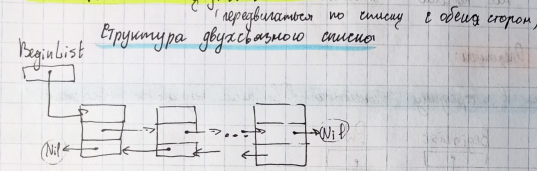 передвигаться по списку с обеих сторон,
Структура двухсвязного списка
BeginList
Nil
Nil